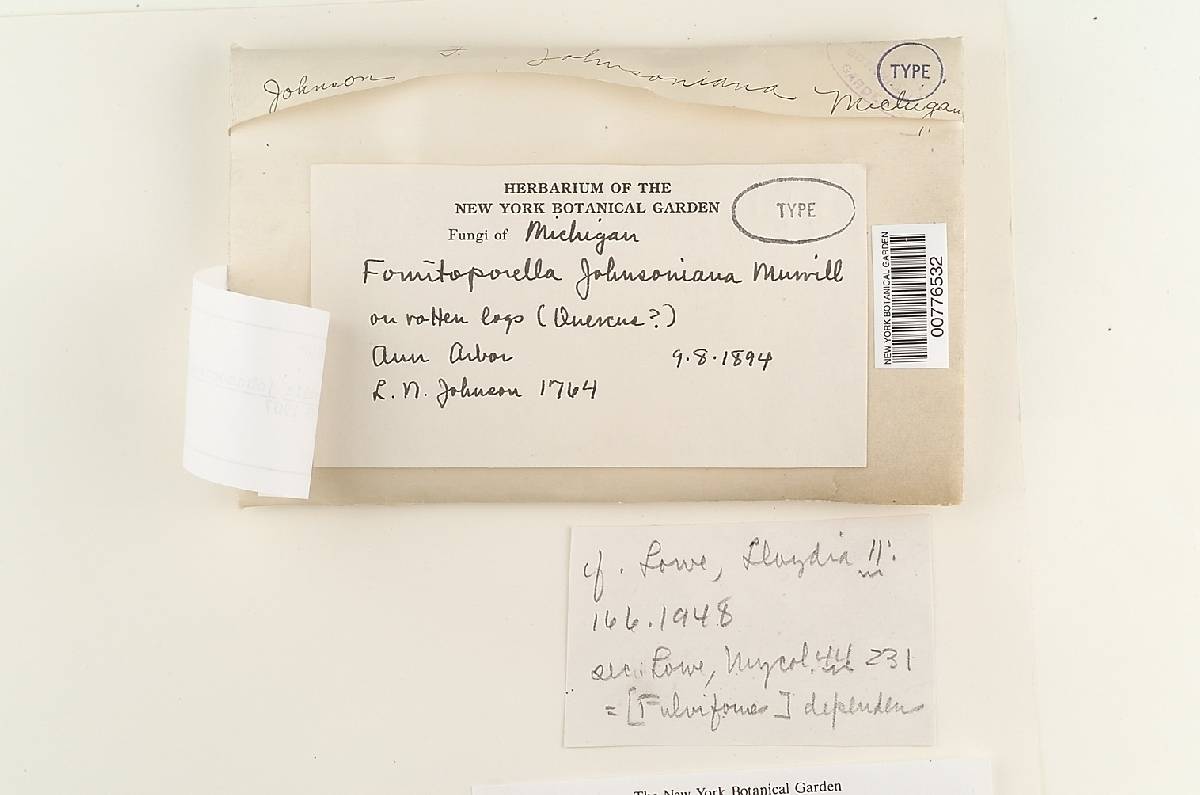 Johnson F. Johnsoniana Michigan
TYPE
HERBARIUM OF THE
NEW YORK BOTANICAL GARDEN
TYPE
Fungi of Michigan
Fomitoporella Johnsoniana Murrill
on rotten logs (Quercus?)
Ann Arbor 9.8.1894
L. N. Johnson 1764
NEW YORK BOTANICAL GARDEN
00776532
cf. Lowe, Lloydia 11:
166.1948
sec. Lowe, Mycol. 44 231
= [Fulvifomes] dependens
The New York Botanical Garden